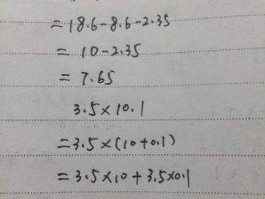 =18.6-8.6-2.35
=10-2.35
=7.65
3.5×10.1
=3.5×(10+0.1)
=3.5×10+3.5×0.1